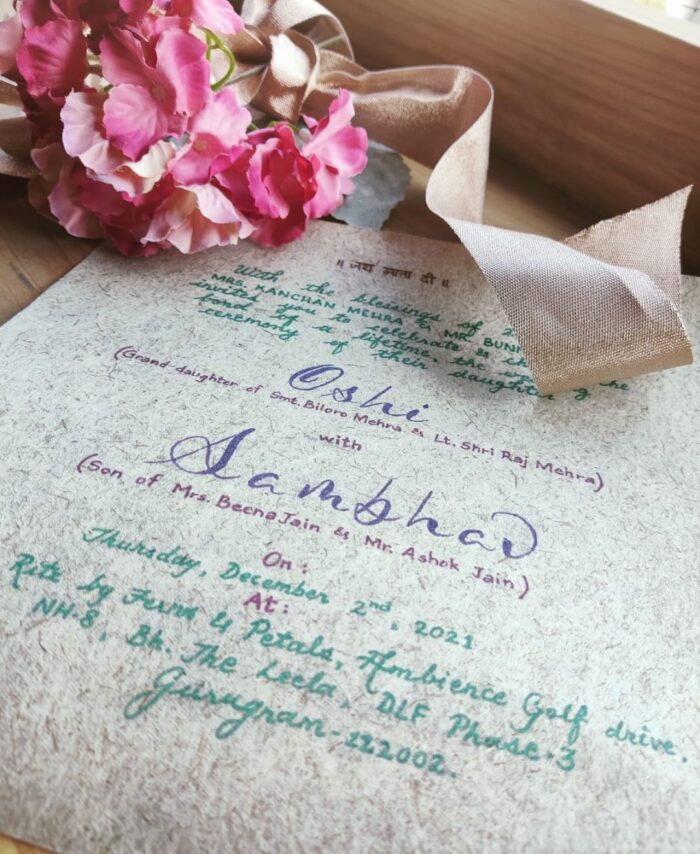 ॥ जय माता दी ॥
With the blessings of
MRS. KANCHAN MEHRA & MR. BUNN
invites you to celebrate &
bond of a lifetime, the the
ceremony of their daughter of
Oshi
(Grand daughter of Smt. Biloro Mehra & Lt. Shri Raj Mehra)
with
Sambhav
(Son of Mrs. Beena Jain & Mr. Ashok Jain)
On :
Thursday, December 2nd, 2021
At :
Ritz by Ferns & Petals, Ambience Golf drive.
NH-8, Bh. The Leela, DLF Phase-3
Gurugram-122002.